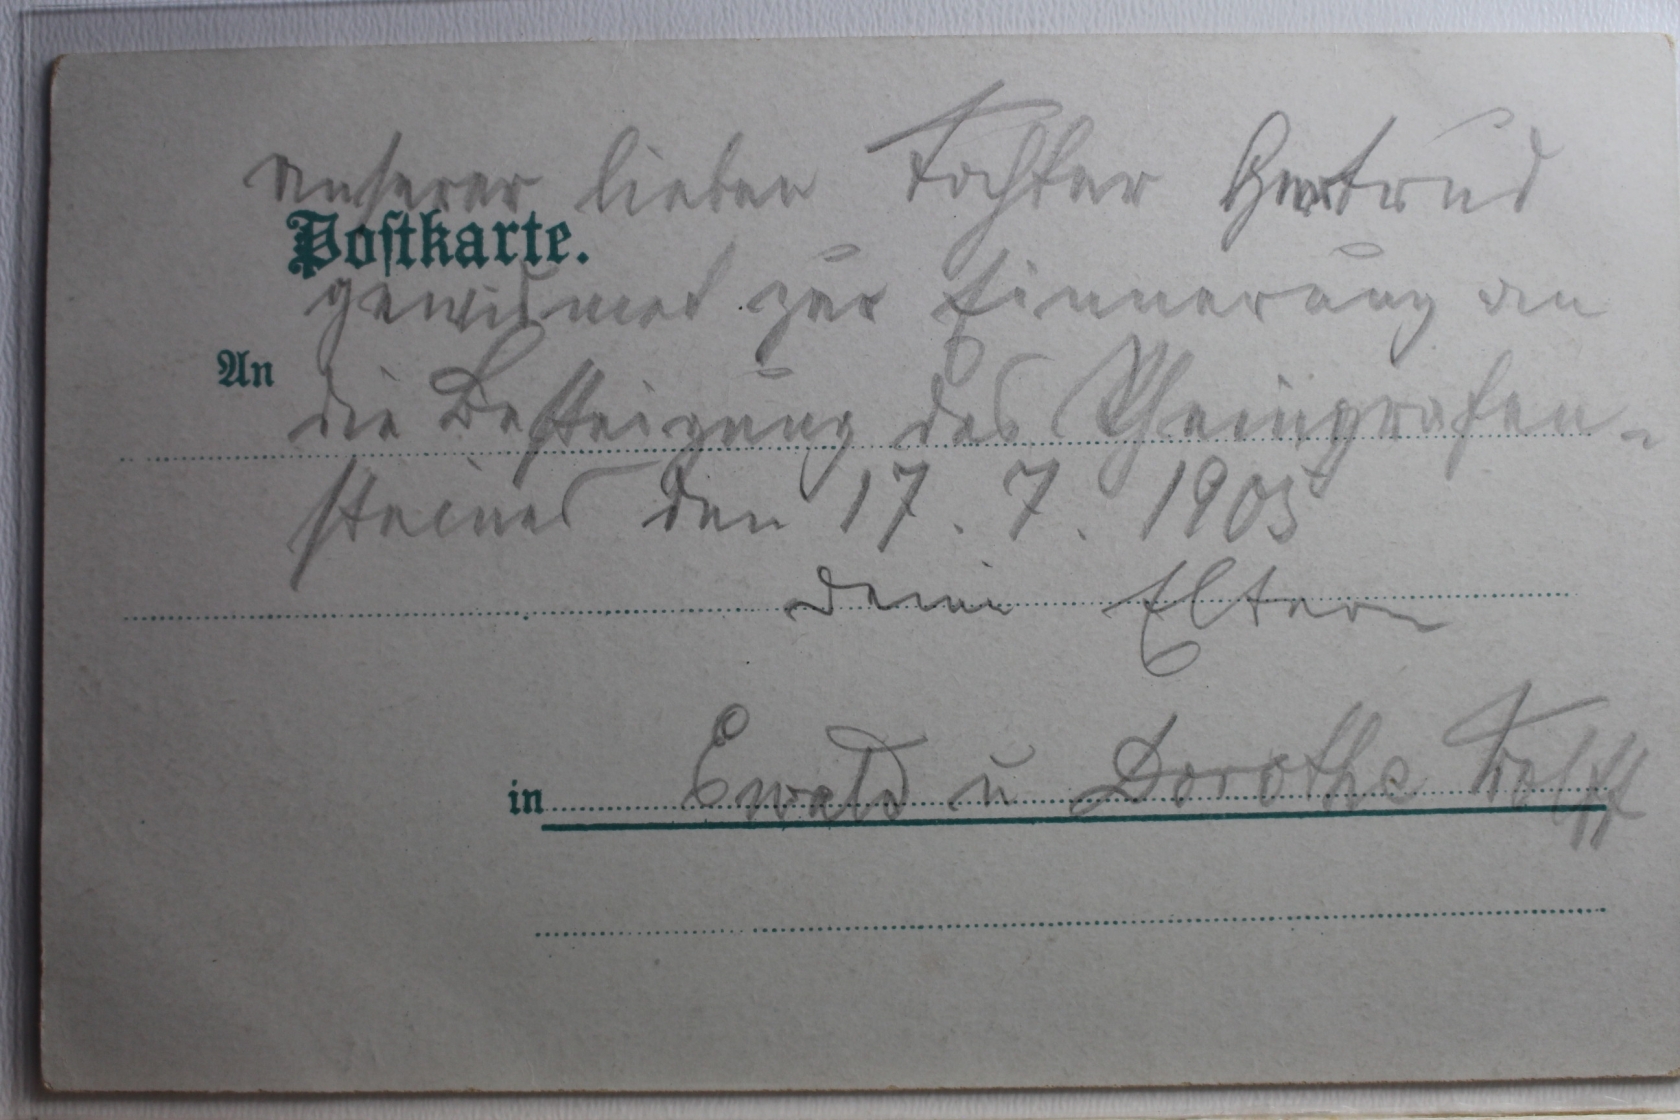 unserer lieben Tochter Gertrud
Postkarte.
gewidmet zur Erinnerung an
An
die Besteigung des Rheingrafen-
steines den 17. 7. 1905
Deine Eltern
in Ewald u Dorothe